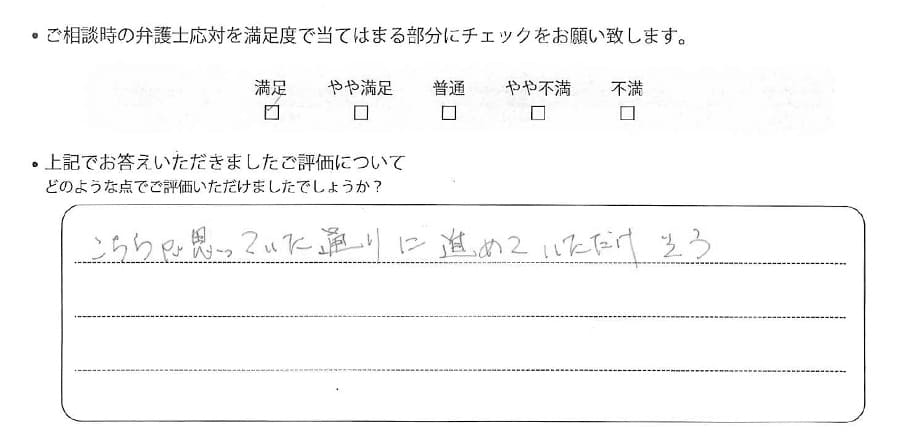 • ご相談時の弁護士応対を満足度で当てはまる部分にチェックをお願い致します。
満足 やや満足 普通 やや不満 不満
☑ □ □ □ □
• 上記でお答えいただきましたご評価について
どのような点でご評価いただけましたでしょうか？
こちらが思っていた通りに進めていただけそう